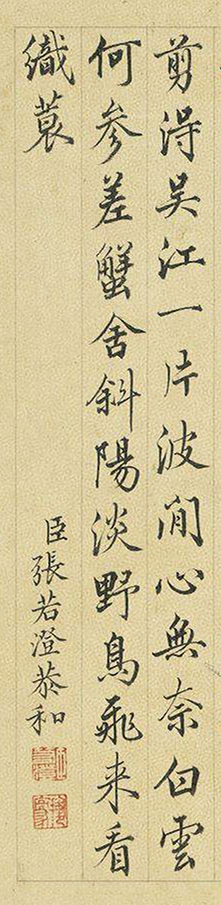 剪得吴江一片波閒心無奈白雲
何參差蟹舍斜陽淡野鳥飛来看
織蓑
臣張若澄恭和